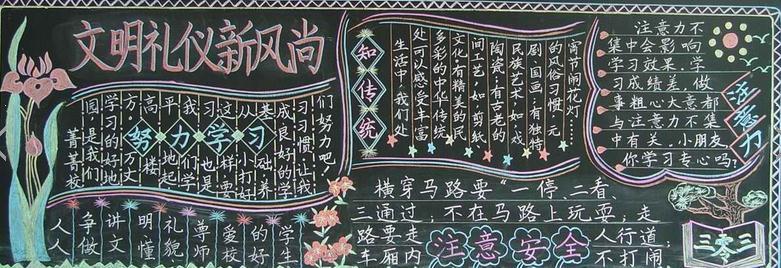 文明礼仪新风尚
菁菁校
园,是我们
学习的好地
方,万丈
高楼
平地起
我们学
习也是
这样,要
从小打好
基础,养
成良好的学
习习惯,让我
们努力吧!
努力学习
人人
争做
讲文
明懂
礼貌
尊师
爱校
的好
学生
知传统
生活中,我们处
处可以感受丰富
多彩的中华传统
文化:有精美的民
间工艺,如剪纸、
陶瓷;有古老的
民族艺术,如戏
剧、国画;有独特
的风俗习惯,元
宵节闹花灯……
注意力不
集中会影响
学习效果,学
习成绩差,做
事粗心大意都
与注意力不集
中有关,小朋友
你学习专心吗?
注意力
横穿马路要“一停、二看、
三通过,不在马路上玩耍;走
路要走人行道;
车厢内不打闹
注意安全
三零三